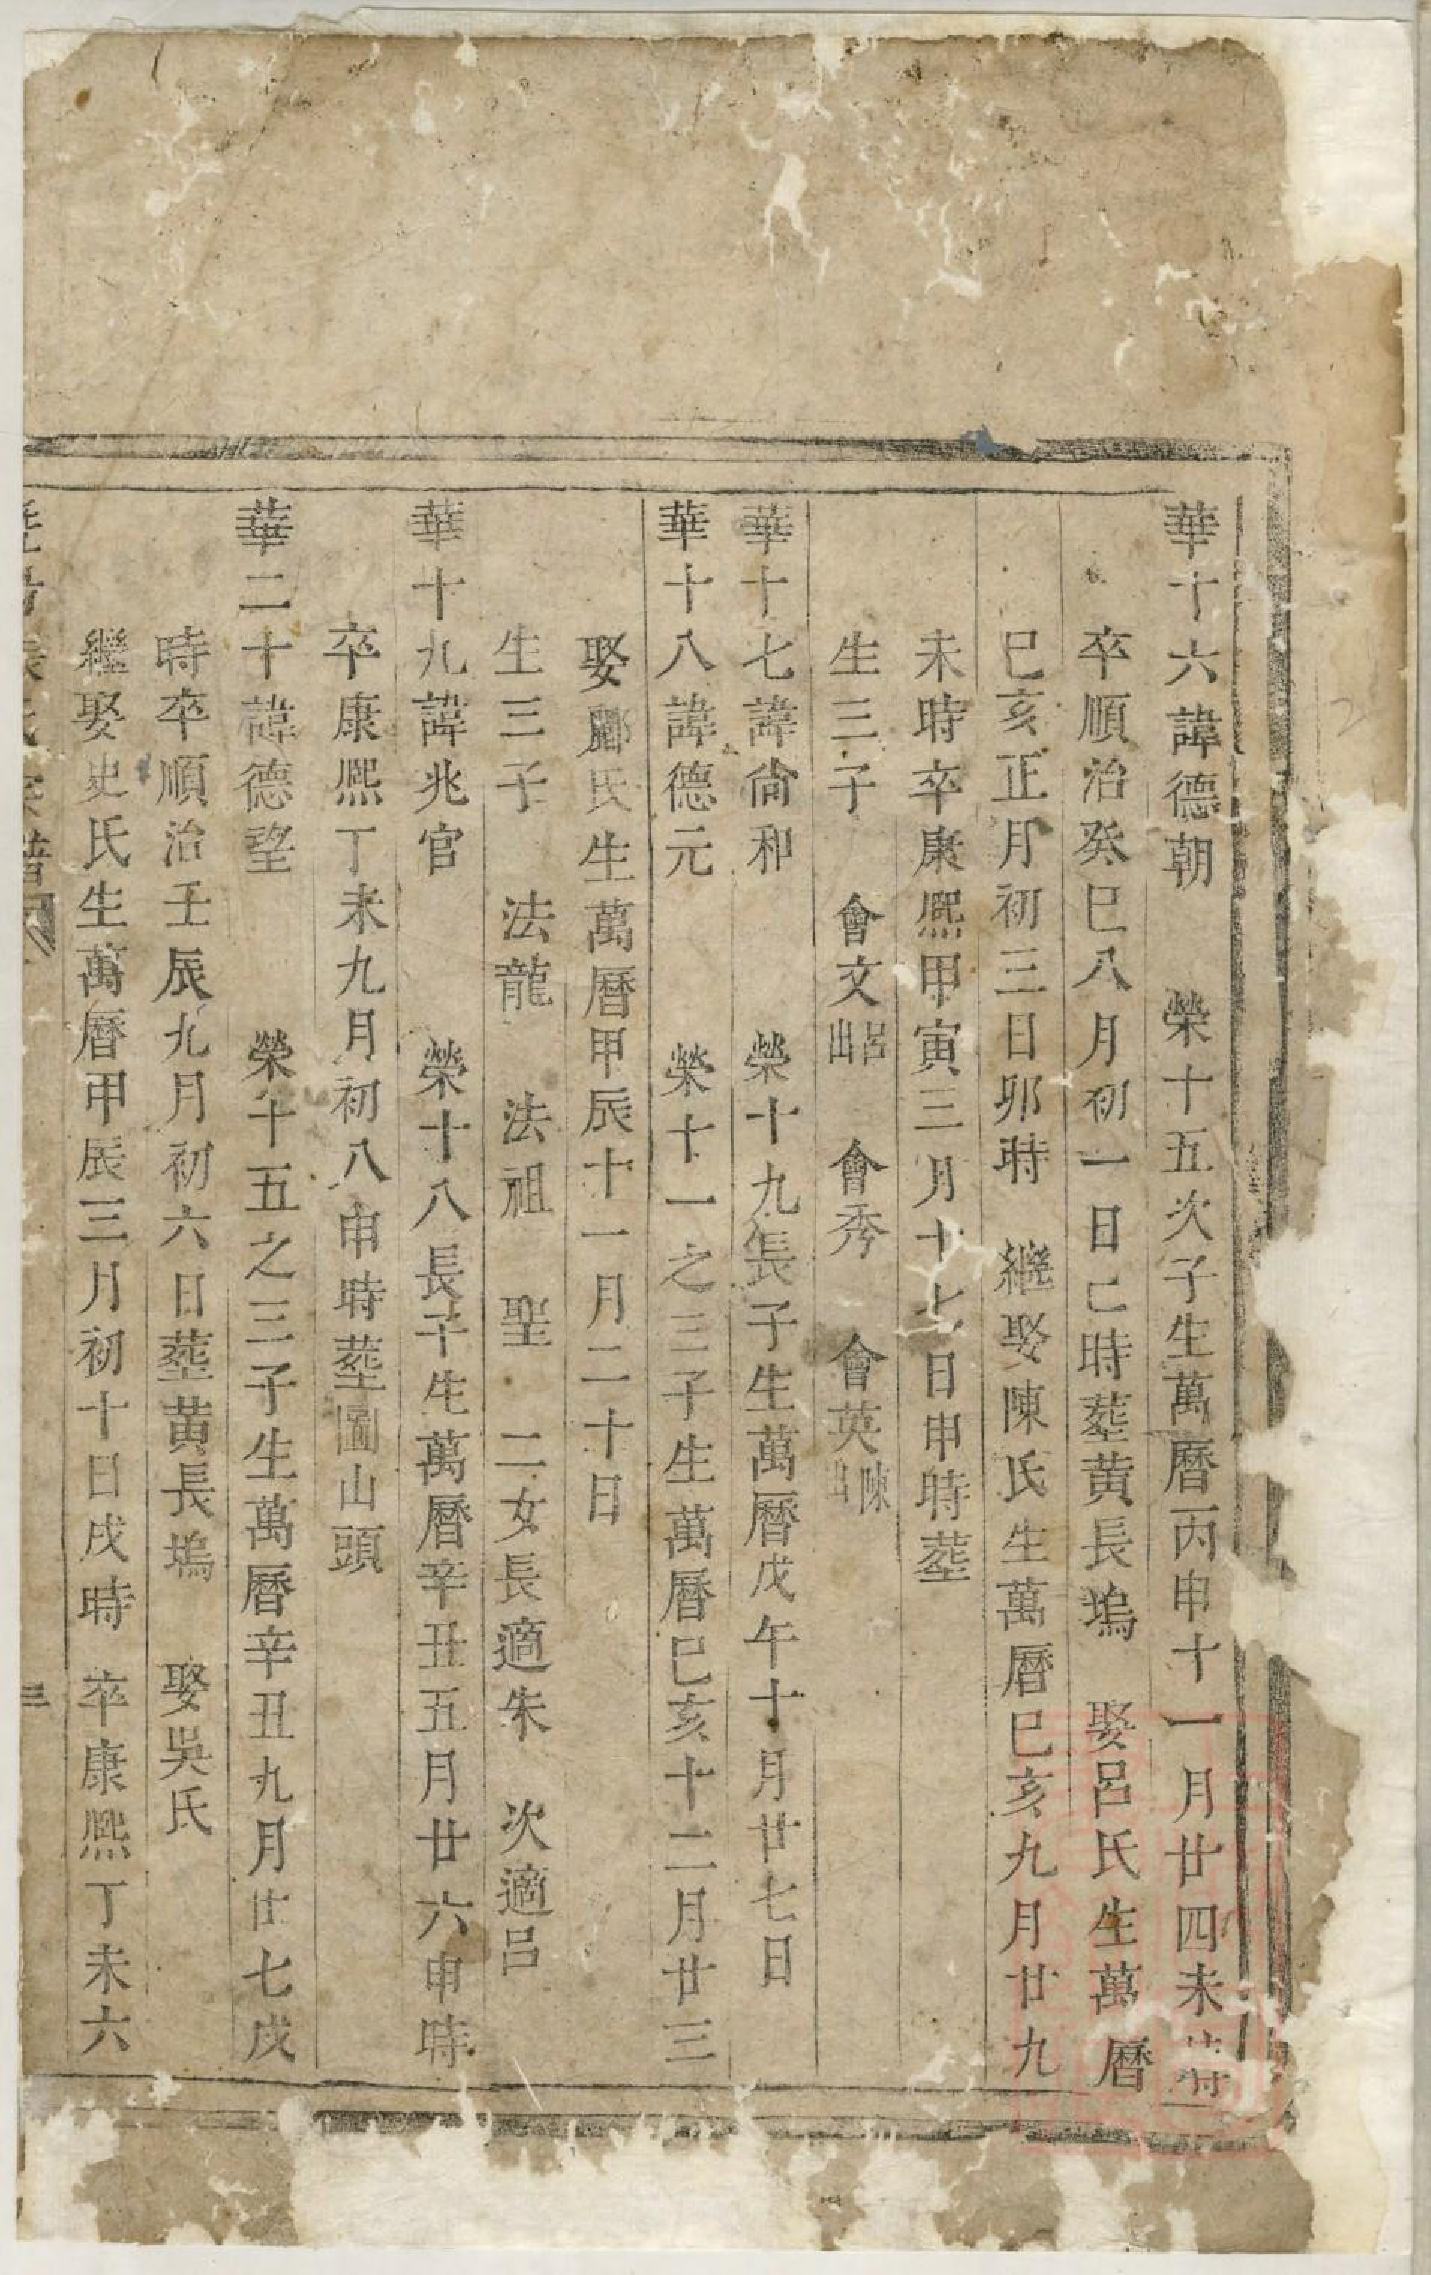 華十六諱德朝　榮十五次子生萬曆丙申十一月廿四未時
卒順治癸巳八月初一日己時塟黄長塢　娶呂氏生萬曆
巳亥正月初三日卯時　繼娶陳氏生萬曆巳亥九月廿九
未時卒康熙甲寅三月十七日申時塟
生三子　會文呂出　會秀　會英陳出
華十七諱尙和　榮十九長子生萬曆戊午十月廿七日
華十八諱德元　榮十一之三子生萬曆巳亥十二月廿三
娶酈氏生萬曆甲辰十一月二十日
生三子　法龍　法祖　聖　二女長適朱　次適呂
華十九諱兆官　榮十八長子生萬曆辛丑五月廿六申時
卒康熙丁未九月初八申時塟圖山頭
華二十諱德望　榮十五之三子生萬曆辛丑九月廿七戌
時卒順治壬辰九月初六日塟黄長塢　娶吳氏
繼娶史氏生萬曆甲辰三月初十日戌時　卒康熙丁未六
氏宗譜　三